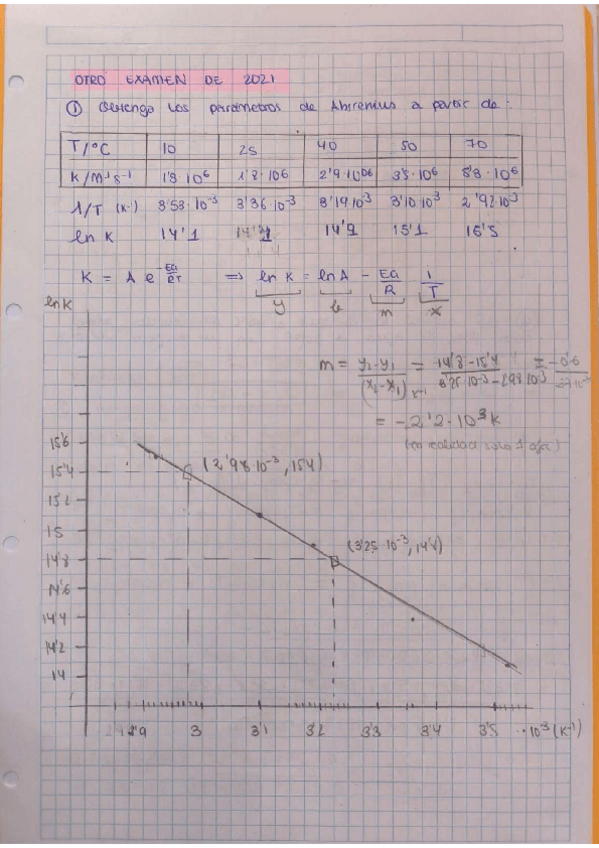 OTRO EXAMEN DE 2021
① Obtenga los parámetros de Ahrrenius a partir de:
T/°C 10 25 40 50 70
K/M⁻¹s⁻¹ 1'3·10⁶ 1'8·10⁶ 2'9·10⁶ 3'5·10⁶ 5'3·10⁶
1/T (K⁻¹) 3'53·10⁻³ 3'36·10⁻³ 3'19·10⁻³ 3'10·10⁻³ 2'92·10⁻³
ln K 14'1 14'9 15'1 15'5
K = A e^(-Ea/RT) ⟹ ln K = ln A - Ea/R 1/T
y b m x
ln K
m = (y₂-y₁)/(x₂-x₁) = (14'8-15'4)/(3'25·10⁻³-2'98·10⁻³) K⁻¹ = -0'6
= -2'2·10³ K
(en realidad solo 1)
15'6
15'4
(2'98·10⁻³, 15'4)
15'2
15
(3'25·10⁻³, 14'8)
14'8
14'6
14'4
14'2
14
2'9 3 3'1 3'2 3'3 3'4 3'5 ·10⁻³ (K⁻¹)